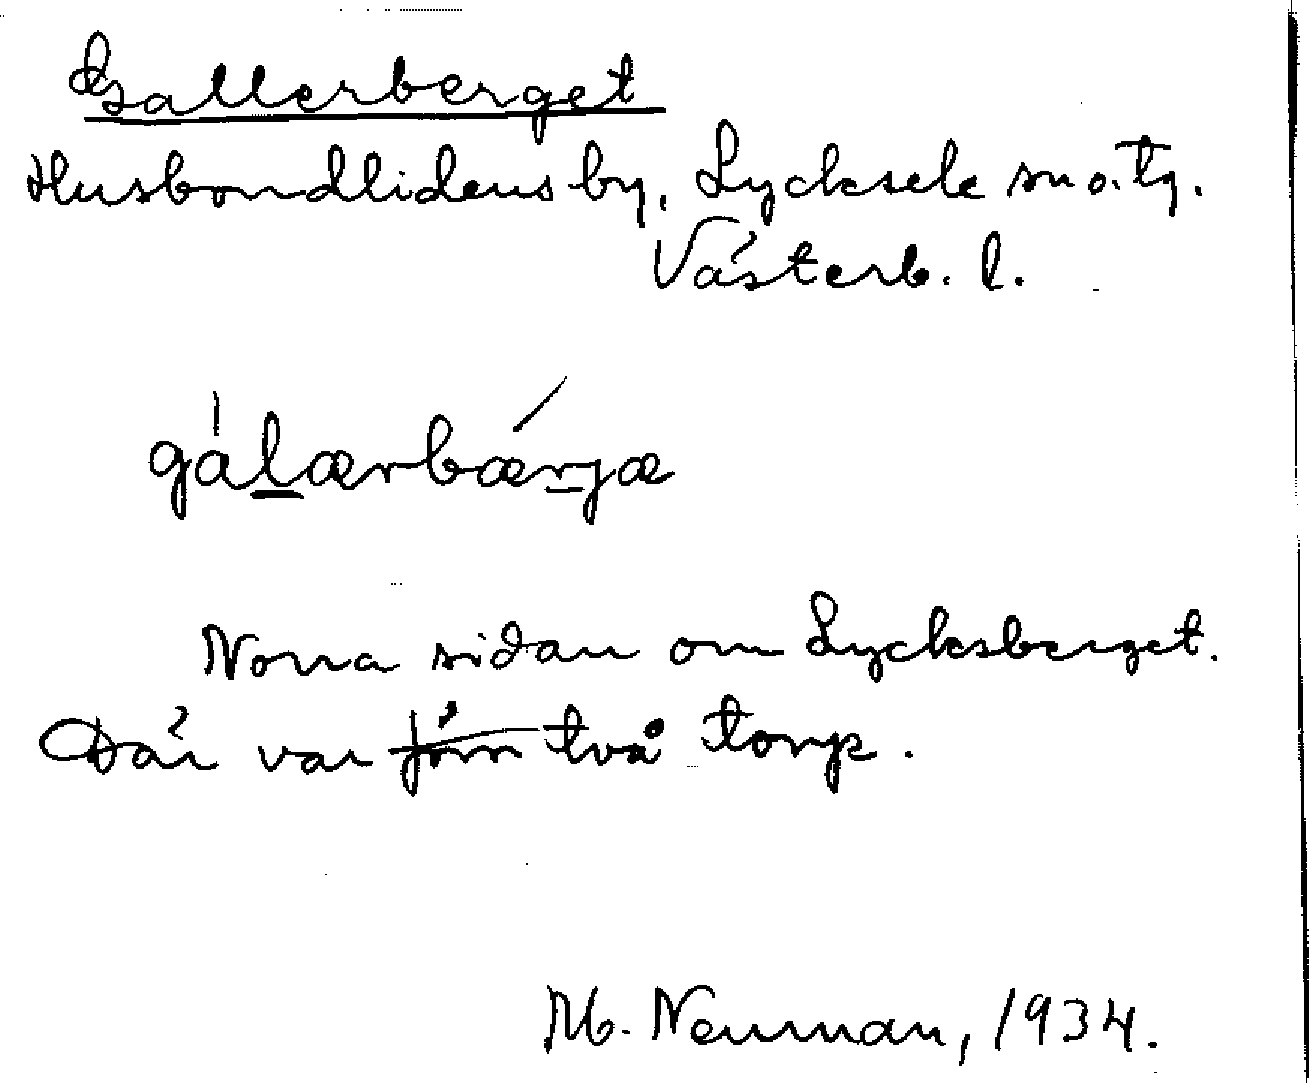 Gallerberget
Husbondlidens by, Lycksele sn o. tg.
Västerb. l.
gàlærbǽrjæ
Norra sidan om Lycksberget.
Där var två torp.
M. Neuman, 1934.